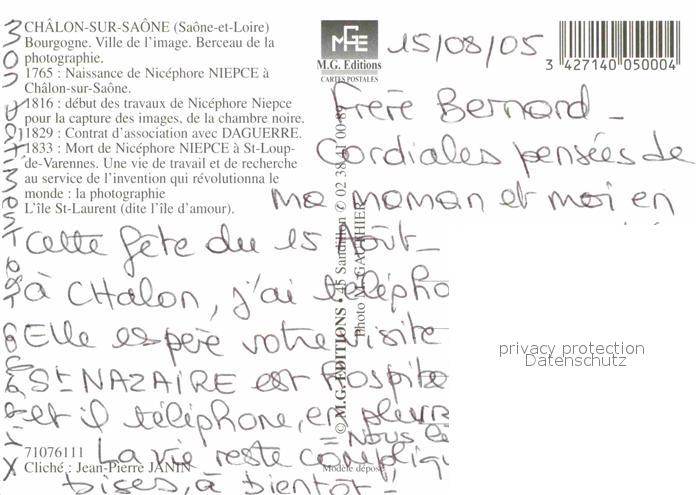 CHÂLON-SUR-SAÔNE (Saône-et-Loire)
Bourgogne. Ville de l'image. Berceau de la
photographie.
1765 : Naissance de Nicéphore NIEPCE à
Châlon-sur-Saône.
1816 : début des travaux de Nicéphore Niepce
pour la capture des images, de la chambre noire.
1829 : Contrat d'association avec DAGUERRE.
1833 : Mort de Nicéphore NIEPCE à St-Loup-
de-Varennes. Une vie de travail et de recherche
au service de l'invention qui révolutionna le
monde : la photographie
L'île St-Laurent (dite l'île d'amour).
MGE
M.G. Editions
CARTES POSTALES
15/08/05
3 427140 050004
Frère Bernard _
Cordiales pensées de
ma maman et moi en
cette fête du 15 Août_
à CHalon, j'ai télépho
Elle espère votre visite
St NAZAIRE est hospite
et il téléphone, en pleur
= Nous le
La vie reste compliqu
bises, à bientôt !
© M.G. EDITIONS • 45 Sandillon ✆ 02 38 41 00 89
Photo M. GAUTHIER
71076111
Cliché : Jean-Pierre JANIN
Modèle déposé
privacy protection
Datenschutz